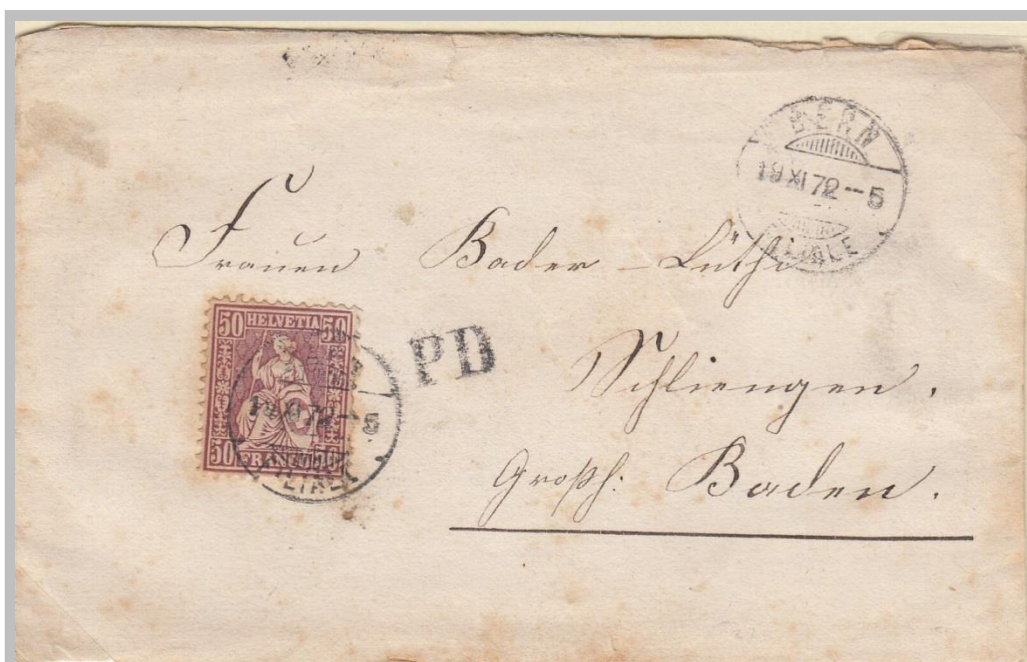 BERN
19 XI 72 – 5
FILIALE
Frauen Bader – Lüthi
50 HELVETIA 50
50 FRANCO
19 XI 72 – 5
PD
Schliengen.
Großh: Baden.